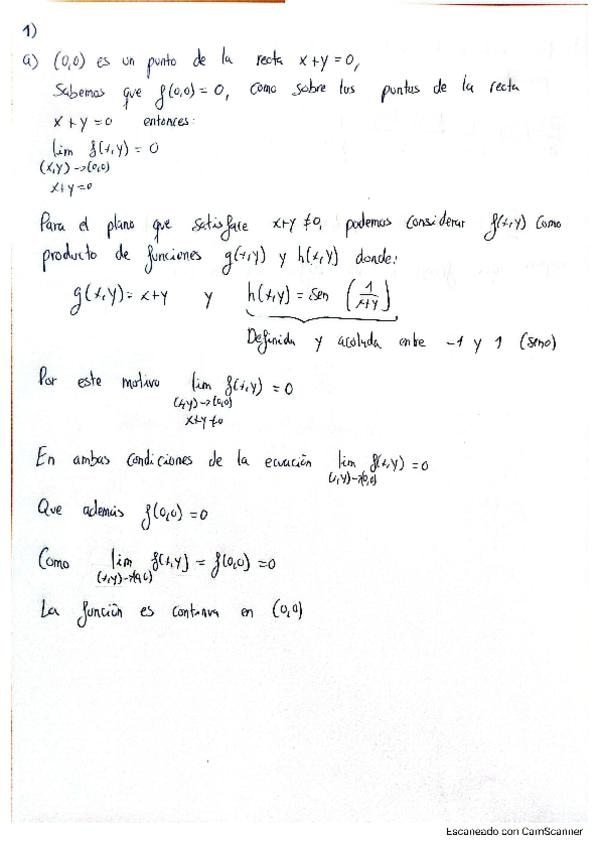 1)
a) (0,0) es un punto de la recta x+y=0,
Sabemos que f(0,0)=0, como sobre los puntos de la recta
x+y=0 entonces:
lim f(x,y) = 0
(x,y)->(0,0)
x+y=0
Para el plano que satisface x+y≠0, podemos considerar f(x,y) como
producto de funciones g(x,y) y h(x,y) donde:
g(x,y)= x+y y h(x,y) = sen (1/(x+y))
Definida y acotada entre -1 y 1 (seno)
Por este motivo lim f(x,y) = 0
(x,y)->(0,0)
x+y≠0
En ambas condiciones de la ecuación lim f(x,y) = 0
(x,y)->(0,0)
Que además f(0,0)=0
Como lim f(x,y) = f(0,0) = 0
(x,y)->(0,0)
La función es continua en (0,0)
Escaneado con CamScanner